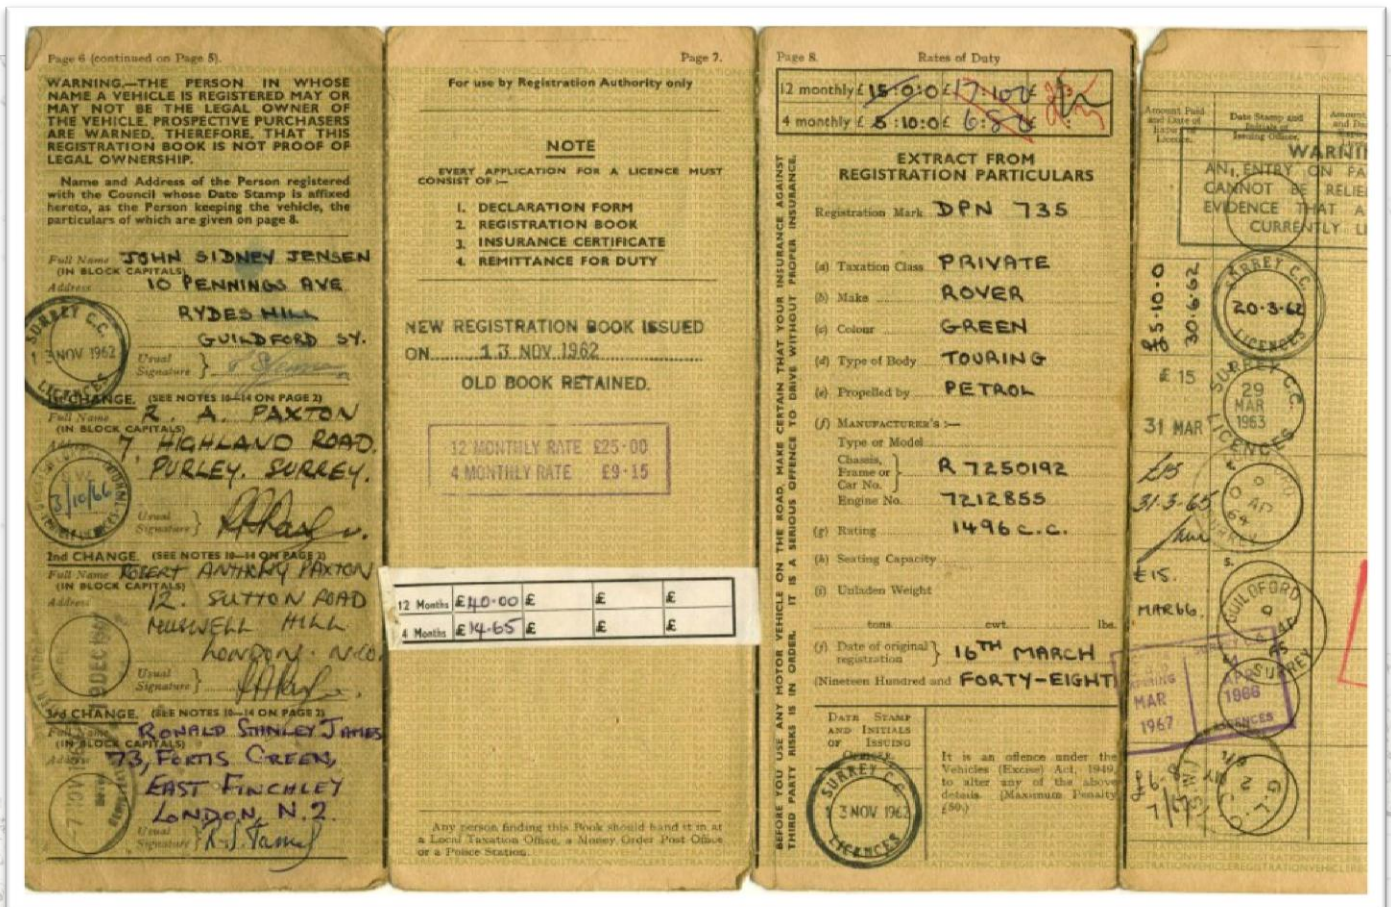 Page 6 (continued on Page 5).
WARNING.—THE PERSON IN WHOSE
NAME A VEHICLE IS REGISTERED MAY OR
MAY NOT BE THE LEGAL OWNER OF
THE VEHICLE. PROSPECTIVE PURCHASERS
ARE WARNED, THEREFORE, THAT THIS
REGISTRATION BOOK IS NOT PROOF OF
LEGAL OWNERSHIP.
Name and Address of the Person registered
with the Council whose Date Stamp is affixed
hereto, as the Person keeping the vehicle, the
particulars of which are given on page 8.
Full Name JOHN SIDNEY JENSEN
(IN BLOCK CAPITALS)
Address 10 PENNINGS AVE
RYDES HILL
GUILDFORD SY.
SURREY C.C.
13 NOV 1962
LICENCES
Usual
Signature }
1st CHANGE. (SEE NOTES 10—14 ON PAGE 2)
Full Name R. A. PAXTON
(IN BLOCK CAPITALS)
Address 7, HIGHLAND ROAD.
PURLEY. SURREY.
3/10/66
Usual
Signature }
2nd CHANGE. (SEE NOTES 10—14 ON PAGE 2)
Full Name ROBERT ANTHONY PAXTON
(IN BLOCK CAPITALS)
Address 12. SUTTON ROAD
MUSWELL HILL
LONDON. N.10.
Usual
Signature }
3rd CHANGE. (SEE NOTES 10—14 ON PAGE 2)
Full Name RONALD STANLEY JAMES
(IN BLOCK CAPITALS)
Address 73, FORTIS GREEN,
EAST FINCHLEY
LONDON, N.2.
Usual
Signature } R.S. James
Page 7.
For use by Registration Authority only
NOTE
EVERY APPLICATION FOR A LICENCE MUST
CONSIST OF :—
1. DECLARATION FORM
2. REGISTRATION BOOK
3. INSURANCE CERTIFICATE
4. REMITTANCE FOR DUTY
NEW REGISTRATION BOOK ISSUED
ON 13 NOV 1962
OLD BOOK RETAINED.
12 MONTHLY RATE £25-00
4 MONTHLY RATE £9-15
12 Months £40-00 £ £ £
4 Months £14.65 £ £ £
Any person finding this Book should hand it in at
a Local Taxation Office, a Money Order Post Office
or a Police Station.
BEFORE YOU USE ANY MOTOR VEHICLE ON THE ROAD, MAKE CERTAIN THAT YOUR INSURANCE AGAINST
THIRD PARTY RISKS IS IN ORDER. IT IS A SERIOUS OFFENCE TO DRIVE WITHOUT PROPER INSURANCE.
Page 8. Rates of Duty
12 monthly £ 15:0:0 £ 17:10:0 £
4 monthly £ 5:10:0 £ 6:8:0 £
EXTRACT FROM
REGISTRATION PARTICULARS
Registration Mark DPN 735
(a) Taxation Class PRIVATE
(b) Make ROVER
(c) Colour GREEN
(d) Type of Body TOURING
(e) Propelled by PETROL
(f) MANUFACTURER'S :—
Type or Model
Chassis,
Frame or } R 7250192
Car No.
Engine No. 7212855
(g) Rating 1496 C.C.
(h) Seating Capacity
(i) Unladen Weight
tons cwt. lbs.
(j) Date of original
registration } 16TH MARCH
(Nineteen Hundred and FORTY-EIGHT
DATE STAMP
AND INITIALS
OF ISSUING
OFFICER.
SURREY C.C.
13 NOV 1962
LICENCES
It is an offence under the
Vehicles (Excise) Act, 1949,
to alter any of the above
details. (Maximum Penalty
£50.)
Amount Paid
and Date of
Licence.
Date Stamp and
Initials of
Issuing Officer.
WARNIN
AN ENTRY ON PA
CANNOT BE RELIE
EVIDENCE THAT A
CURRENTLY LI
£5-10-0
30.6.62
SURREY C.C.
20-3-62
LICENCES
£15
31 MAR
SURREY C.C.
29
MAR
1963
LICENCES
£15
31-3-65
AP
64
SURREY
£15.
MAR 66.
GUILDFORD
SURREY
MAR
1967
1966
LICENCES
£6-8
7/67
G.L.C.